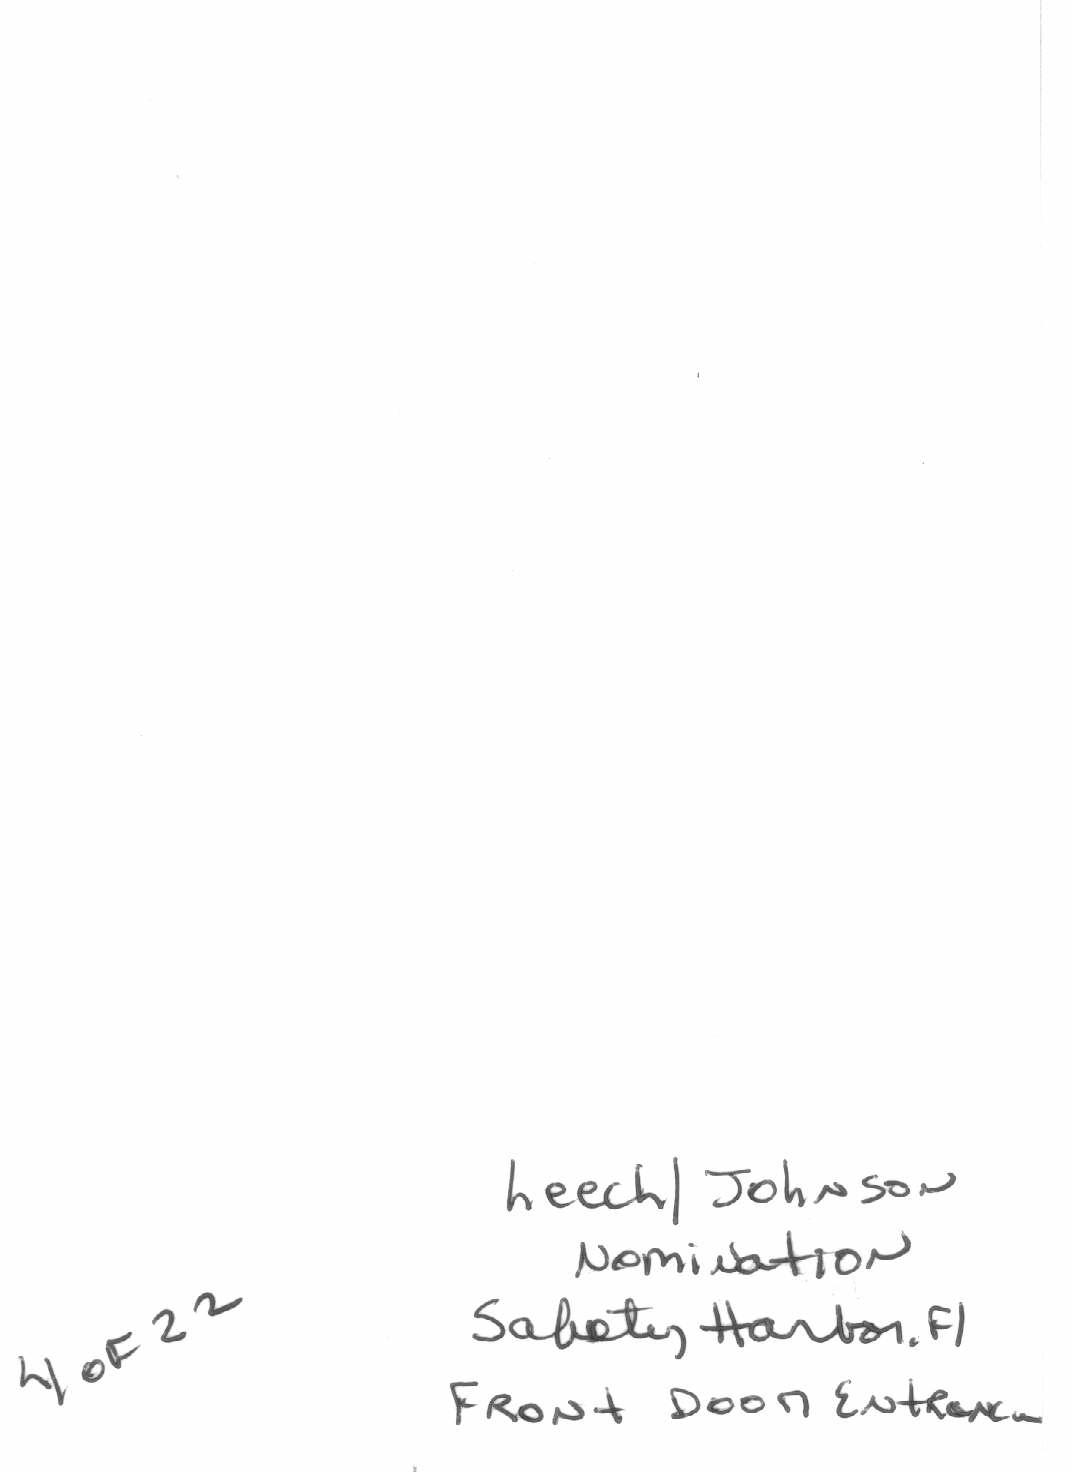 Leech/Johnson
Nomination
Safety Harbor. Fl
Front Door Entrance
4 of 22